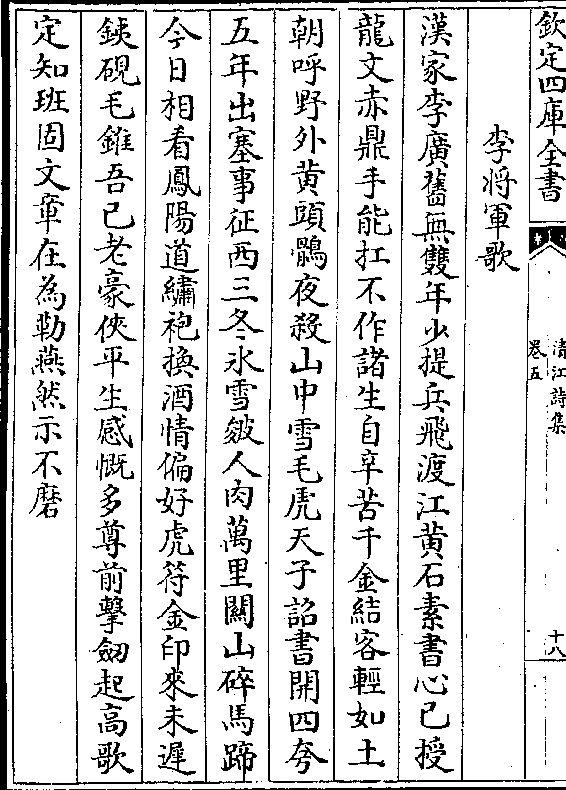 欽定四庫全書
清江詩集
卷五
十八
李將軍歌
漢家李廣舊無雙年少提兵飛渡江黄石素書心已授
龍文赤鼎手能扛不作諸生自辛苦千金結客輕如土
朝呼野外黄頭鶻夜殺山中雪毛虎天子詔書開四夸
五年出塞事征西三冬氷雪皴人肉萬里關山碎馬蹄
今日相看鳳陽道繡袍換酒情偏好虎符金印來未遲
銕硯毛錐吾已老豪俠平生感慨多尊前擊劒起高歌
定知班固文章在為勒燕然示不磨